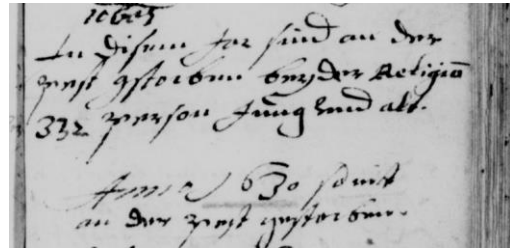 In disem Jar sind an der
pest gstorben beyder Religio͞n
332 person Jung vnd alt.
Anno 1630 sonst
an der pest gestorben.